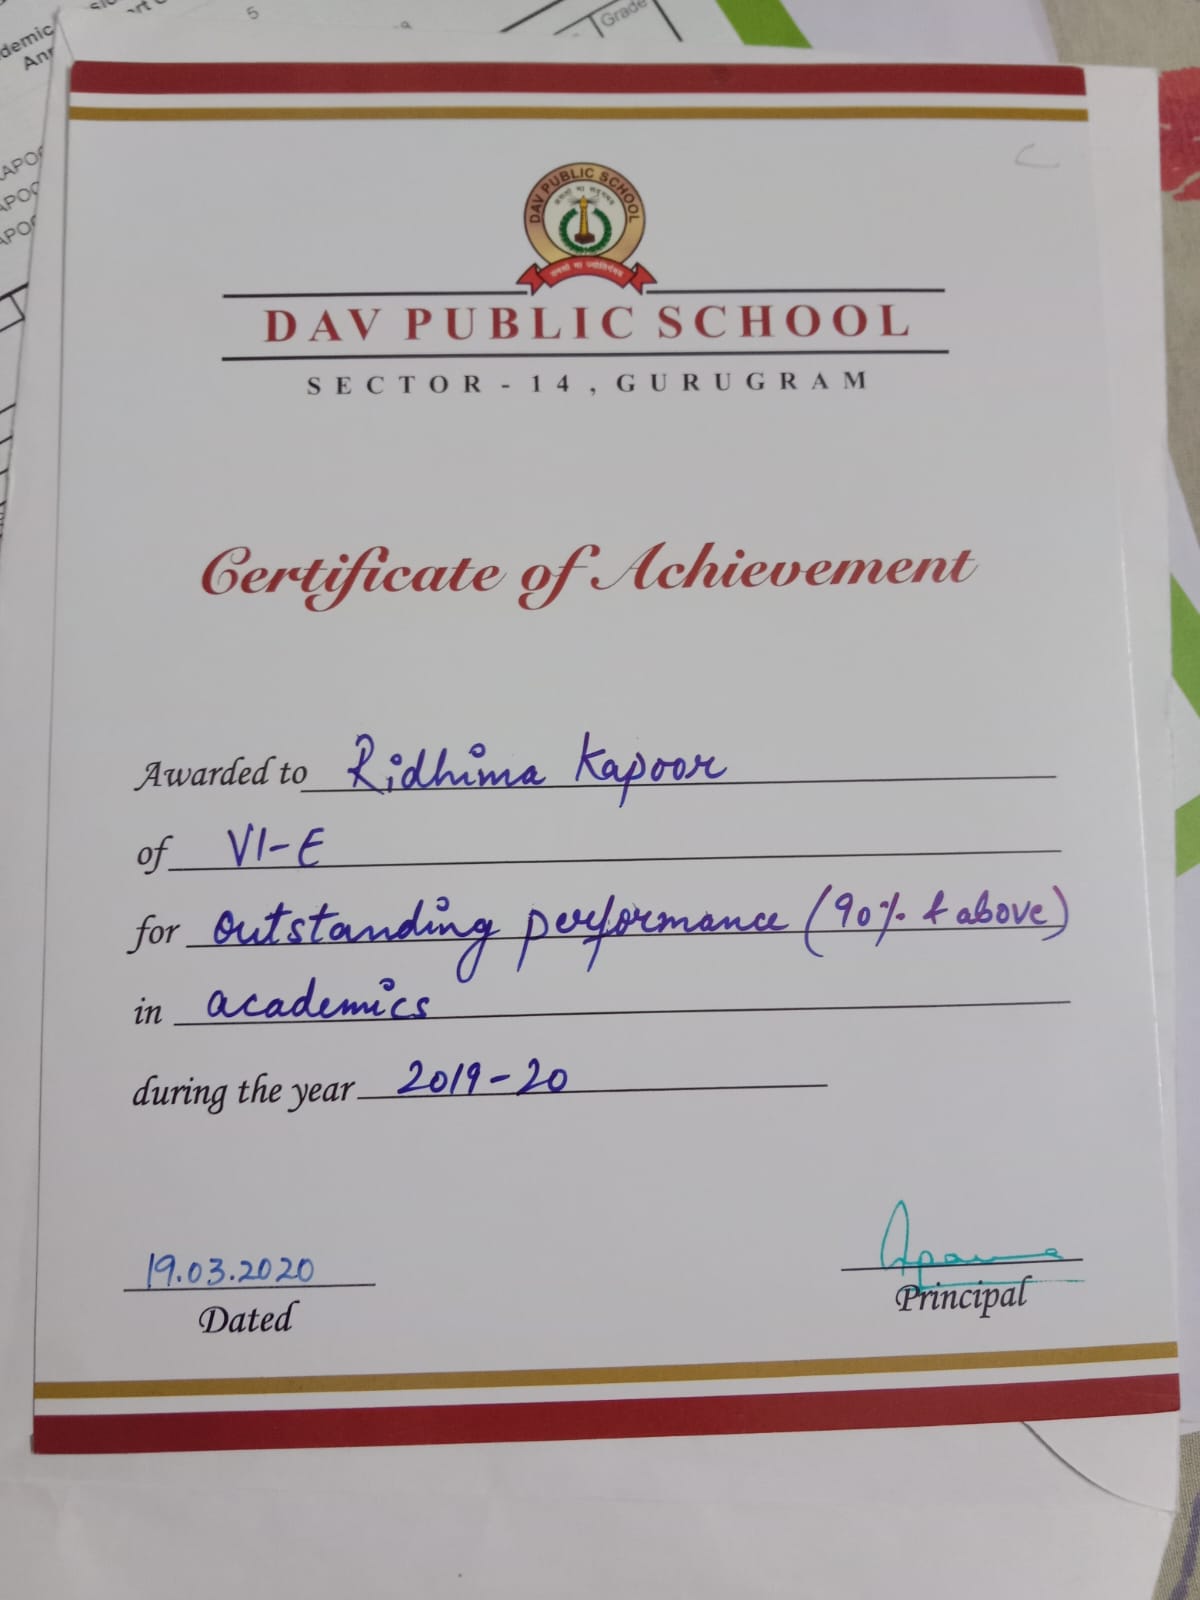 demic
Ann
5
Grade
DAV PUBLIC SCHOOL
DAV PUBLIC SCHOOL
SECTOR - 14, GURUGRAM
Certificate of Achievement
Awarded to Ridhima Kapoor
of VI-E
for outstanding performance (90% & above)
in academics
during the year 2019-20
19.03.2020
Dated
Principal